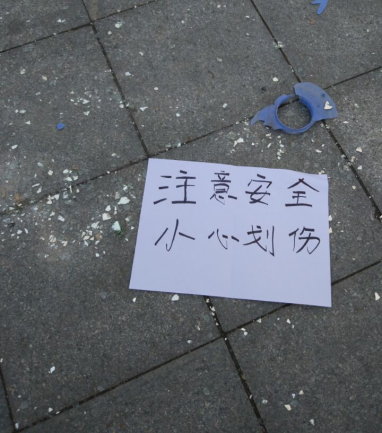 注意安全
小心划伤